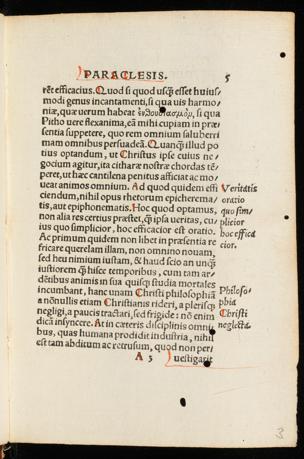 PARACLESIS. 5
rēt efficacius. Quod si quod usq̃ esset huius-
modi genus incantamenti, si qua uis harmo-
niæ, quæ uerum habeat ἐνθουσιασμόν, si qua
Pitho uere flexanima, eā mihi cupiam in præ-
sentia suppetere, quo rem omnium saluberri
mam omnibus persuadeā. Quanq̃ illud po
tius optandum, ut Christus ipse cuius ne-
gocium agitur, ita citharæ nostræ chordas tē-
peret, ut hæc cantilena penitus afficiat ac mo-
ueat animos omnium. Ad quod quidem effi
ciendum, nihil opus rhetorum epicherema-
tis, aut epiphonematis. Hoc quod optamus,
non alia res certius præstet, q̃ ipsa ueritas, cu-
ius quo simplicior, hoc efficacior est oratio.
Ac primum quidem non libet in præsentia re
fricare querelam illam, non omnino nouam,
sed heu nimium iustam, & haud scio an unq̃
iustiorem q̃ hisce temporibus, cum tam ar-
dētibus animis in sua quisq; studia mortales
incumbant, hanc unam Christi philosophiā
a nōnullis etiam Christianis rideri, a plerisq;
negligi, a paucis tractari, sed frigide: nō enim
dicā insyncere. At in cæteris disciplinis omni
bus, quas humana prodidit industria, nihil
est tam abditum ac retrusum, quod non per
A 3 uestigarit
Veritatis
oratio
quo sim/
plicior
hoc effica
cior.
Philoso/
phia
Christi
neglecta.
3